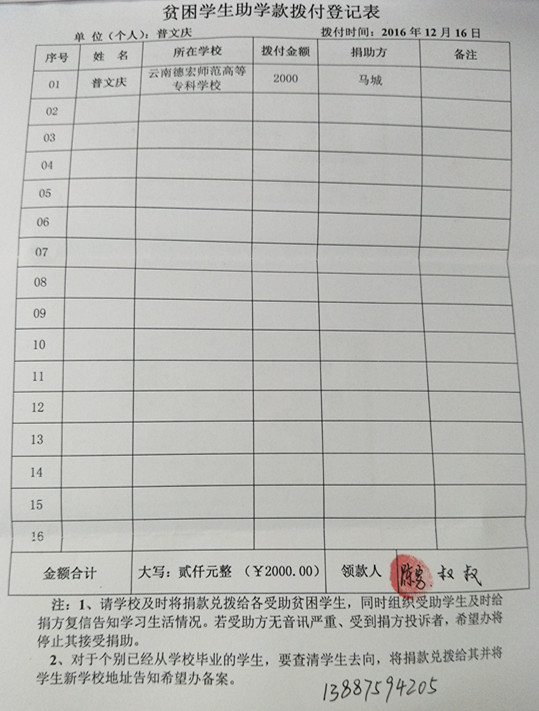 贫困学生助学款拨付登记表
单 位（个人）：普文庆 拨付时间：2016 年 12 月 16 日
序号 姓 名 所在学校 拨付金额 捐助方 备注
01 普文庆 云南德宏师范高等 2000 马城
专科学校
02
03
04
05
06
07
08
09
10
11
12
13
14
15
16
金额合计 大写：贰仟元整 （￥2000.00） 领款人 叔 叔
注：1、请学校及时将捐款兑拨给各受助贫困学生，同时组织受助学生及时给
捐方复信告知学习生活情况。若受助方无音讯严重、受到捐方投诉者，希望办将
停止其接受捐助。
2、对于个别已经从学校毕业的学生，要查清学生去向，将捐款兑拨给其并将
学生新学校地址告知希望办备案。
13887594205